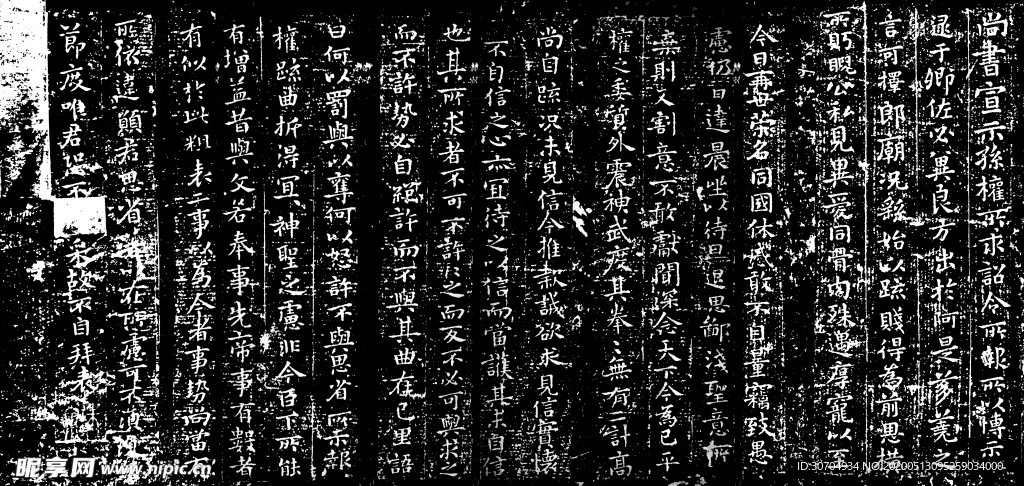 尚書宣示孫權所求詔令所報所以博示
逮于卿佐必冀良方出於阿是芻蕘之
言可擇郎廟況繇始以疏賤得為前恩橫
所盼睨公私見異愛同骨肉殊遇厚寵以至
今日再世榮名同國休慼敢不自量竊致愚
慮仍日達晨坐以待旦退思鄙淺聖意所
棄則又割意不敢獻聞深念天下今為已平
權之委質外震神武度其拳〻無有二計高
尚自疏況未見信今推款誠欲求見信實懷
不自信之心亦宜待之以信而當護其未自信
也其所求者不可不許許之而反不必可與求之
而不許勢必自絕許而不與其曲在己里語
曰何以罰與以奪何以怒許不與思省所示報
權疏曲折得宜宜神聖之慮非今臣下所能
有增益昔與文若奉事先帝事有數者
有似於此粗表二事以為今者事勢尚當
所依違願君思省 在所慮可不須
節度唯君恐不 采故不自拜表
昵享网 www.nipic.cn
ID:30704934 NO:20200513095259034000